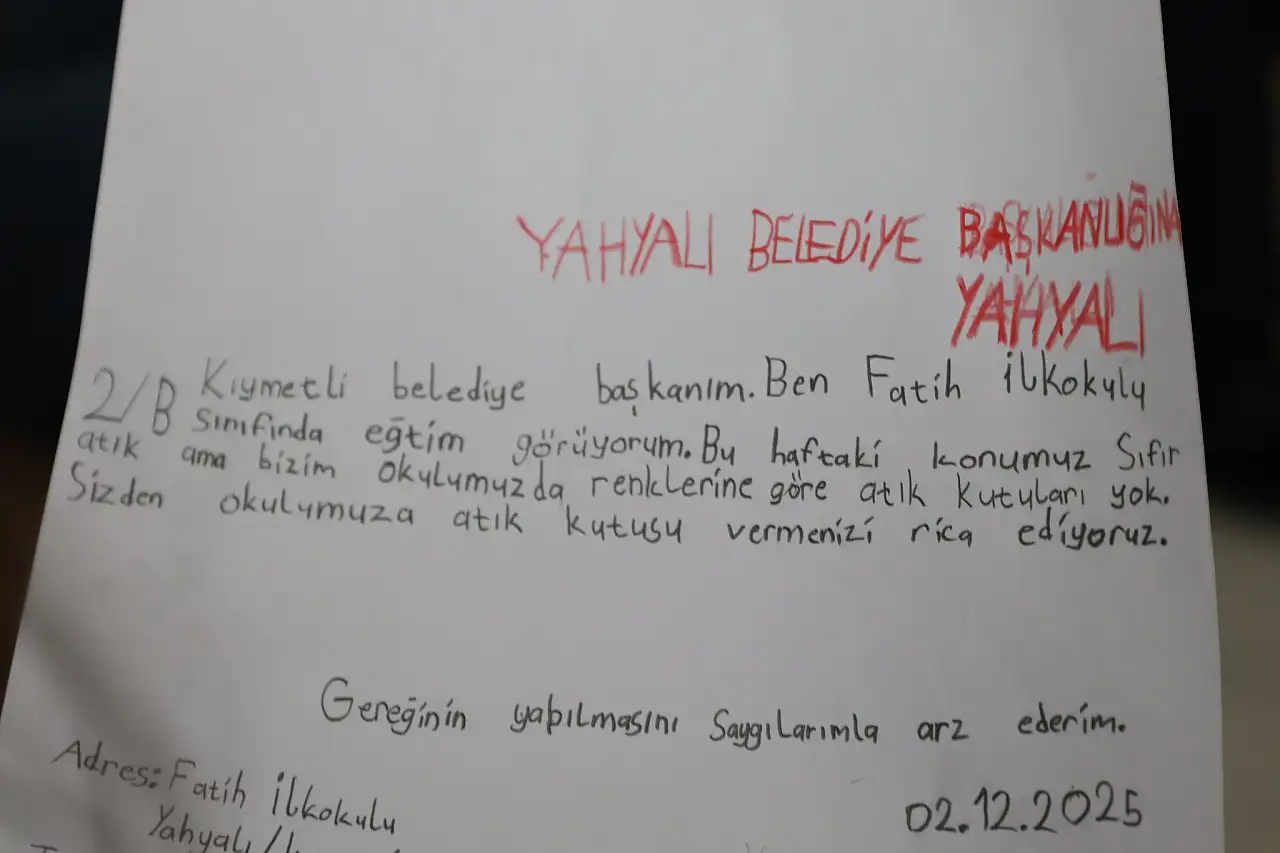 YAHYALI BELEDİYE BAŞKANLIĞINA
YAHYALI
Kıymetli belediye başkanım. Ben Fatih İlkokulu
2/B sınıfında eğtim görüyorum. Bu haftaki konumuz Sıfır
atık ama bizim okulumuzda renklerine göre atık kutuları yok.
Sizden okulumuza atık kutusu vermenizi rica ediyoruz.
Gereğinin yapılmasını Saygılarımla arz ederim.
Adres: Fatih İlkokulu
02.12.2025
Yahyalı/